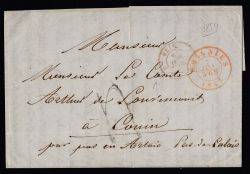 Monsieur
Monsieur Le Comte
Arthur de Louvencourt
à Couin
par pas en Artois Pas de Calais